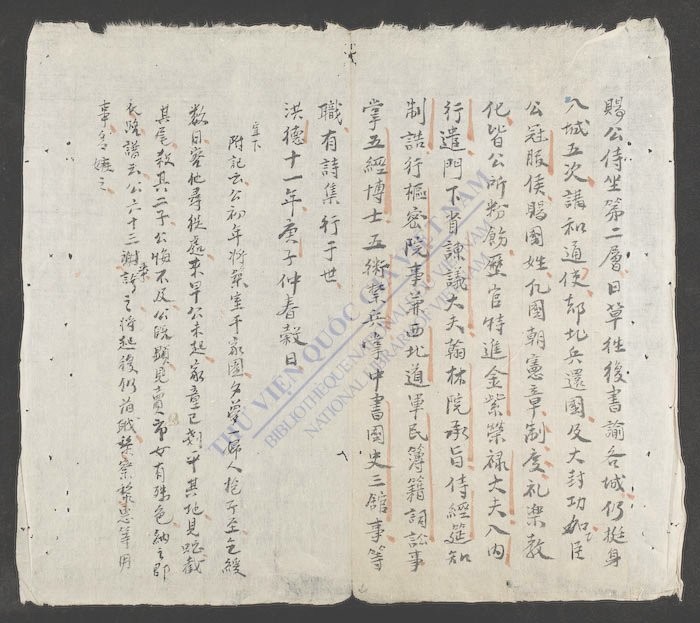 賜公侍坐第二層日草往復書諭各城仍挺身
入城五次講和通使却北兵還國及大封功加臣
公冠服侯賜國姓凡國朝憲章制度礼樂教
化皆公所粉飾歷官特進金紫榮禄大夫入内
行遣門下省諫議大夫翰林院承旨侍經筵知
制誥行樞密院事兼西北道軍民簿籍詞訟事
掌五經博士五術禁兵掌中書國史三舘事等
職有詩集行于世
洪德十一年庚子仲春穀日
附記云公初年將築室于家園夕夢婦人抱子至乞緩
数日容他尋徙處来早公未起家童已
其尾殺其二子公悔不及公既顯見賣席女有殊色納之即
氏路譜云公六十三
THƯ VIỆN QUỐC GIA VIỆT NAM
BIBLIOTHÈQUE NATIONALE DU VIETNAM
NATIONAL LIBRARY OF VIETNAM